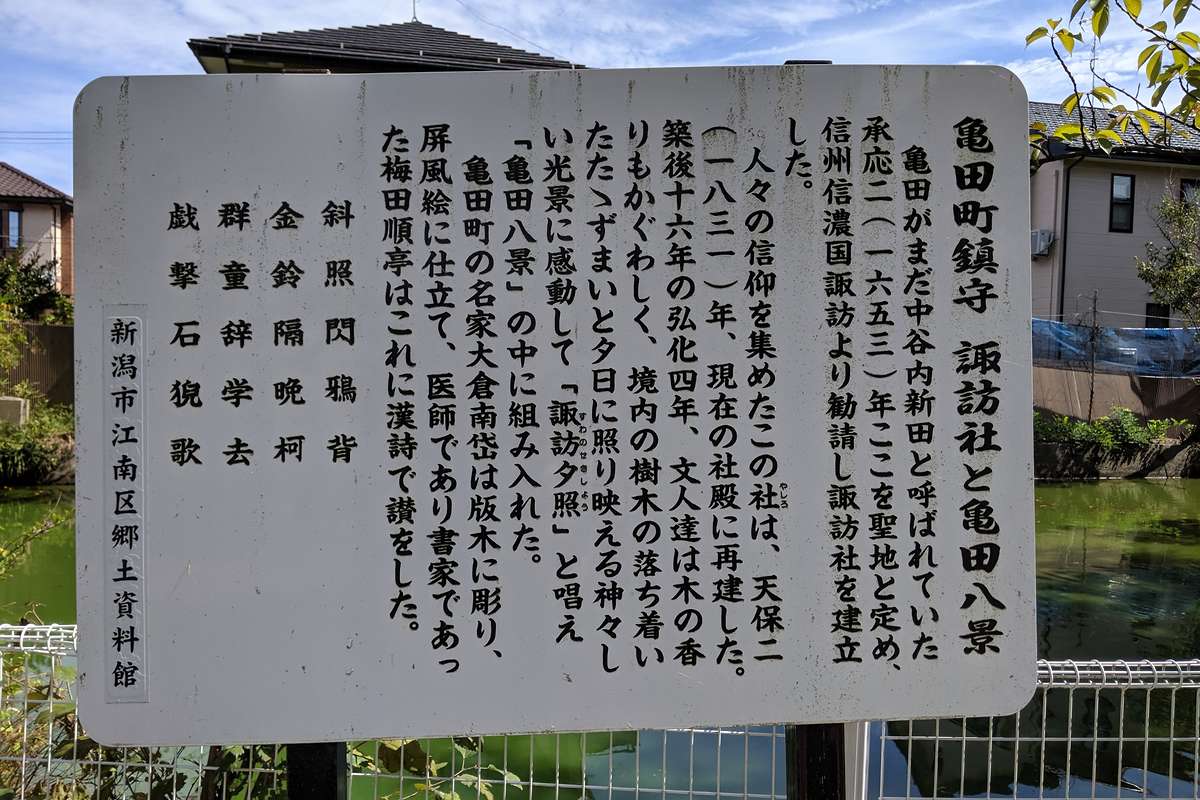 亀田町鎮守　諏訪社と亀田八景
亀田がまだ中谷内新田と呼ばれていた
承応二（一六五三）年ここを聖地と定め、
信州信濃国諏訪より勧請し諏訪社を建立
した。
人々の信仰を集めたこの社は、天保二
（一八三一）年、現在の社殿に再建した。
築後十六年の弘化四年、文人達は木の香
りもかぐわしく、境内の樹木の落ち着い
たたゝずまいと夕日に照り映える神々し
い光景に感動して「諏訪夕照」と唱え
「亀田八景」の中に組み入れた。
亀田町の名家大倉南岱は版木に彫り、
屏風絵に仕立て、医師であり書家であっ
た梅田順亭はこれに漢詩で讃をした。
斜照閃鴉背
金鈴隔晩柯
群童辞学去
戯撃石猊歌
新潟市江南区郷土資料館